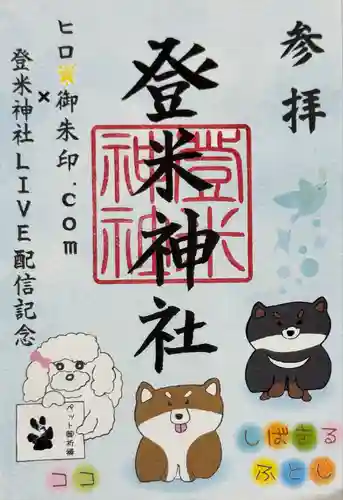 参拝
登米神社
登米神社
ヒロ御朱印.com
×
登米神社LIVE配信記念
ペット御祈願
ココ
しばさる
ふとし